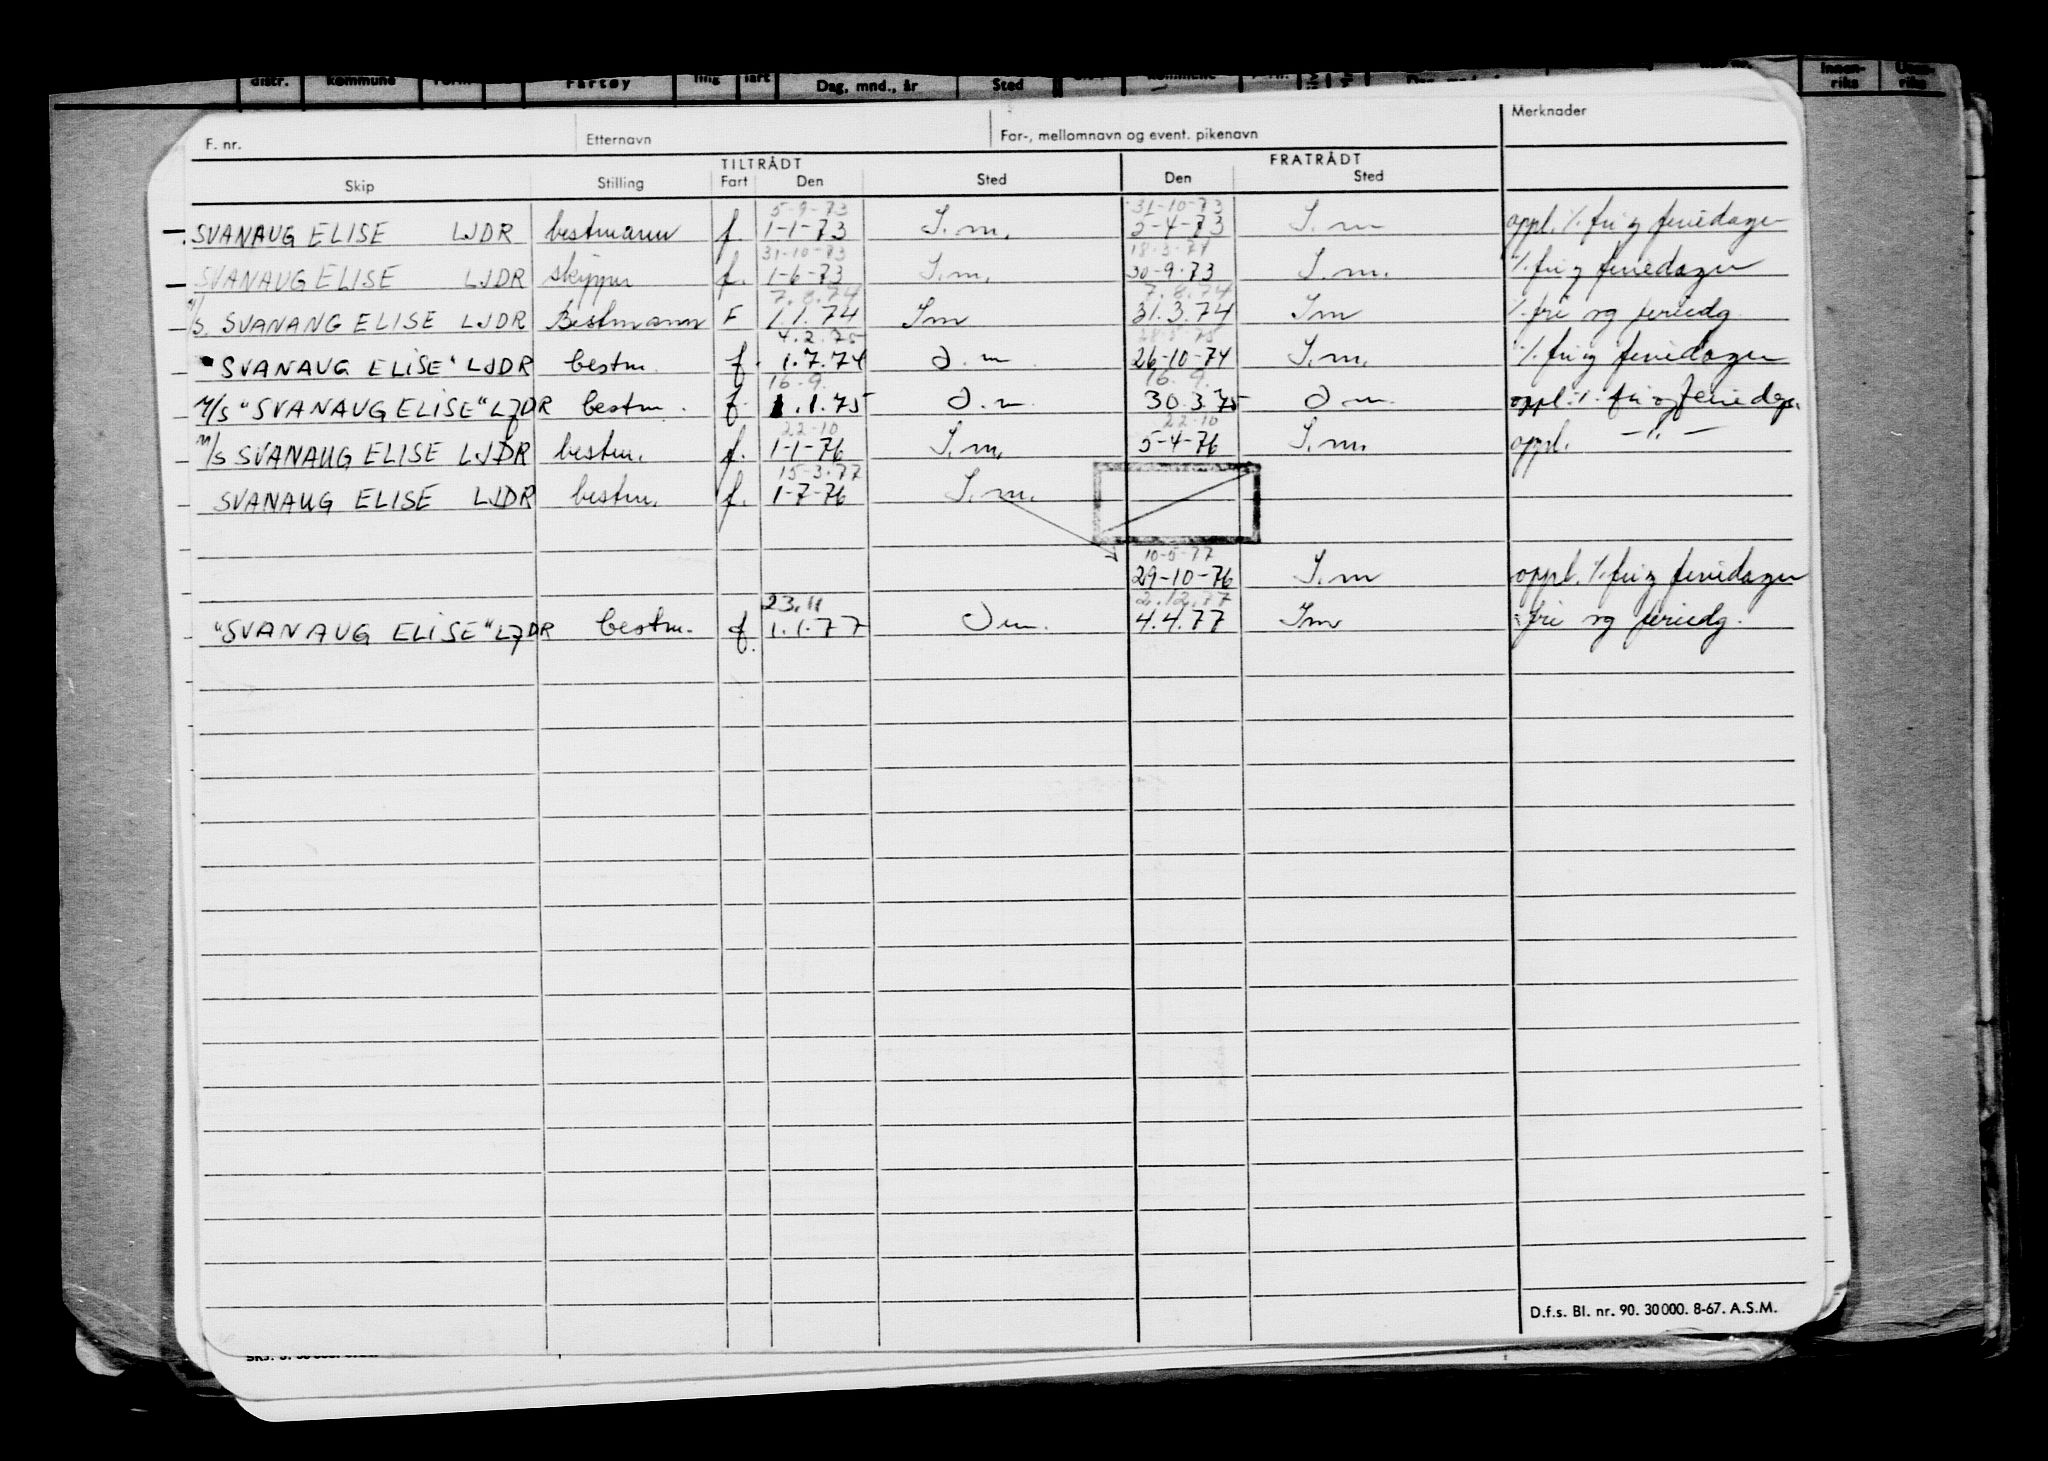 distr. kommune Fartøy Dag, mnd., år Sted Innen-riks Uten-riks
Merknader
F. nr. Etternavn For-, mellomnavn og event. pikenavn
TILTRÅDT FRATRÅDT
Skip Stilling Fart Den Sted Den Sted
5-9-73 31-10-73
SVANAUG ELISE LJDR bestmann f. 1-1-73 I.m. 2-4-73 I.m oppl. %. fri og feriedager
31-10-73 18-3-74
SVANAUG ELISE LJDR skipper f. 1-6-73 I.m. 30-9-73 I.m. %. fri og feriedager
7.8.74 7.8.74
M/S. SVANANG ELISE LJDR Bestmann F 1.1.74 Im 31.3.74 Im %. fri og feriedg.
4.2.75 28-5-75
"SVANAUG ELISE" LJDR bestm. f. 1.7.74 I.m 26-10-74 I.m. %. fri og feriedager
16.9. 16.9.
M/S "SVANAUG ELISE" LJDR bestm. f. 1.1.75 I.m. 30.3.75 I m. oppl. %. fri og feriedgr.
22-10 22-10
M/S SVANAUG ELISE LJDR bestm. f. 1-1-76 I.m. 5-4-76 I.m. oppl. —"—
15-3-77
SVANAUG ELISE LJDR bestm. f. 1-7-76 I.m.
10-5-77
29-10-76 I.m oppl. %. fri og feriedager
23.11 2.12.77
"SVANAUG ELISE" LJDR bestm. f. 1.1.77 I m. 4.4.77 Im %. fri og feriedg.
D.f.s. Bl. nr. 90. 30 000. 8-67. A.S.M.